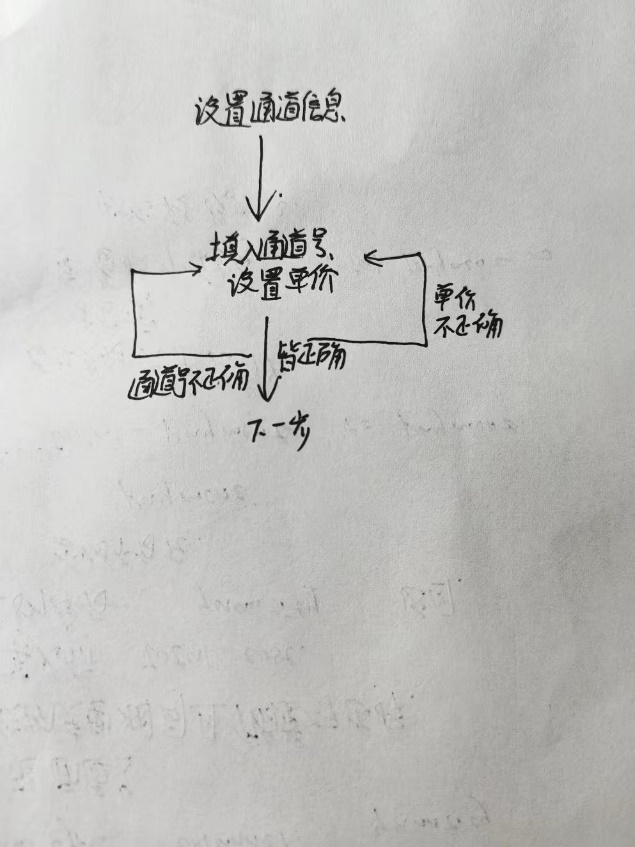 设置通道信息
填入通道号
设置单价
单价
不正确
皆正确
通道号不正确
下一步